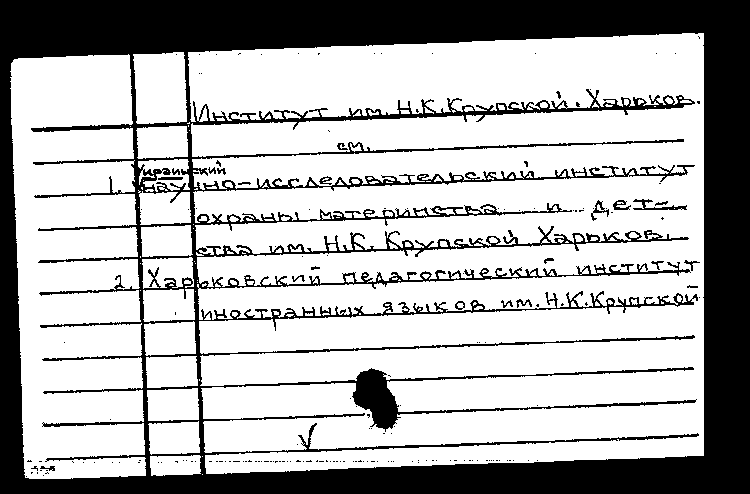 Институт им. Н.К.Крупской. Харьков.
см.
Украинский
1. научно-исследовательский институт
охраны материнства и дет-
ства им. Н.К. Крупской Харьков.
2. Харьковский педагогический институт
иностранных языков им. Н.К.Крупской